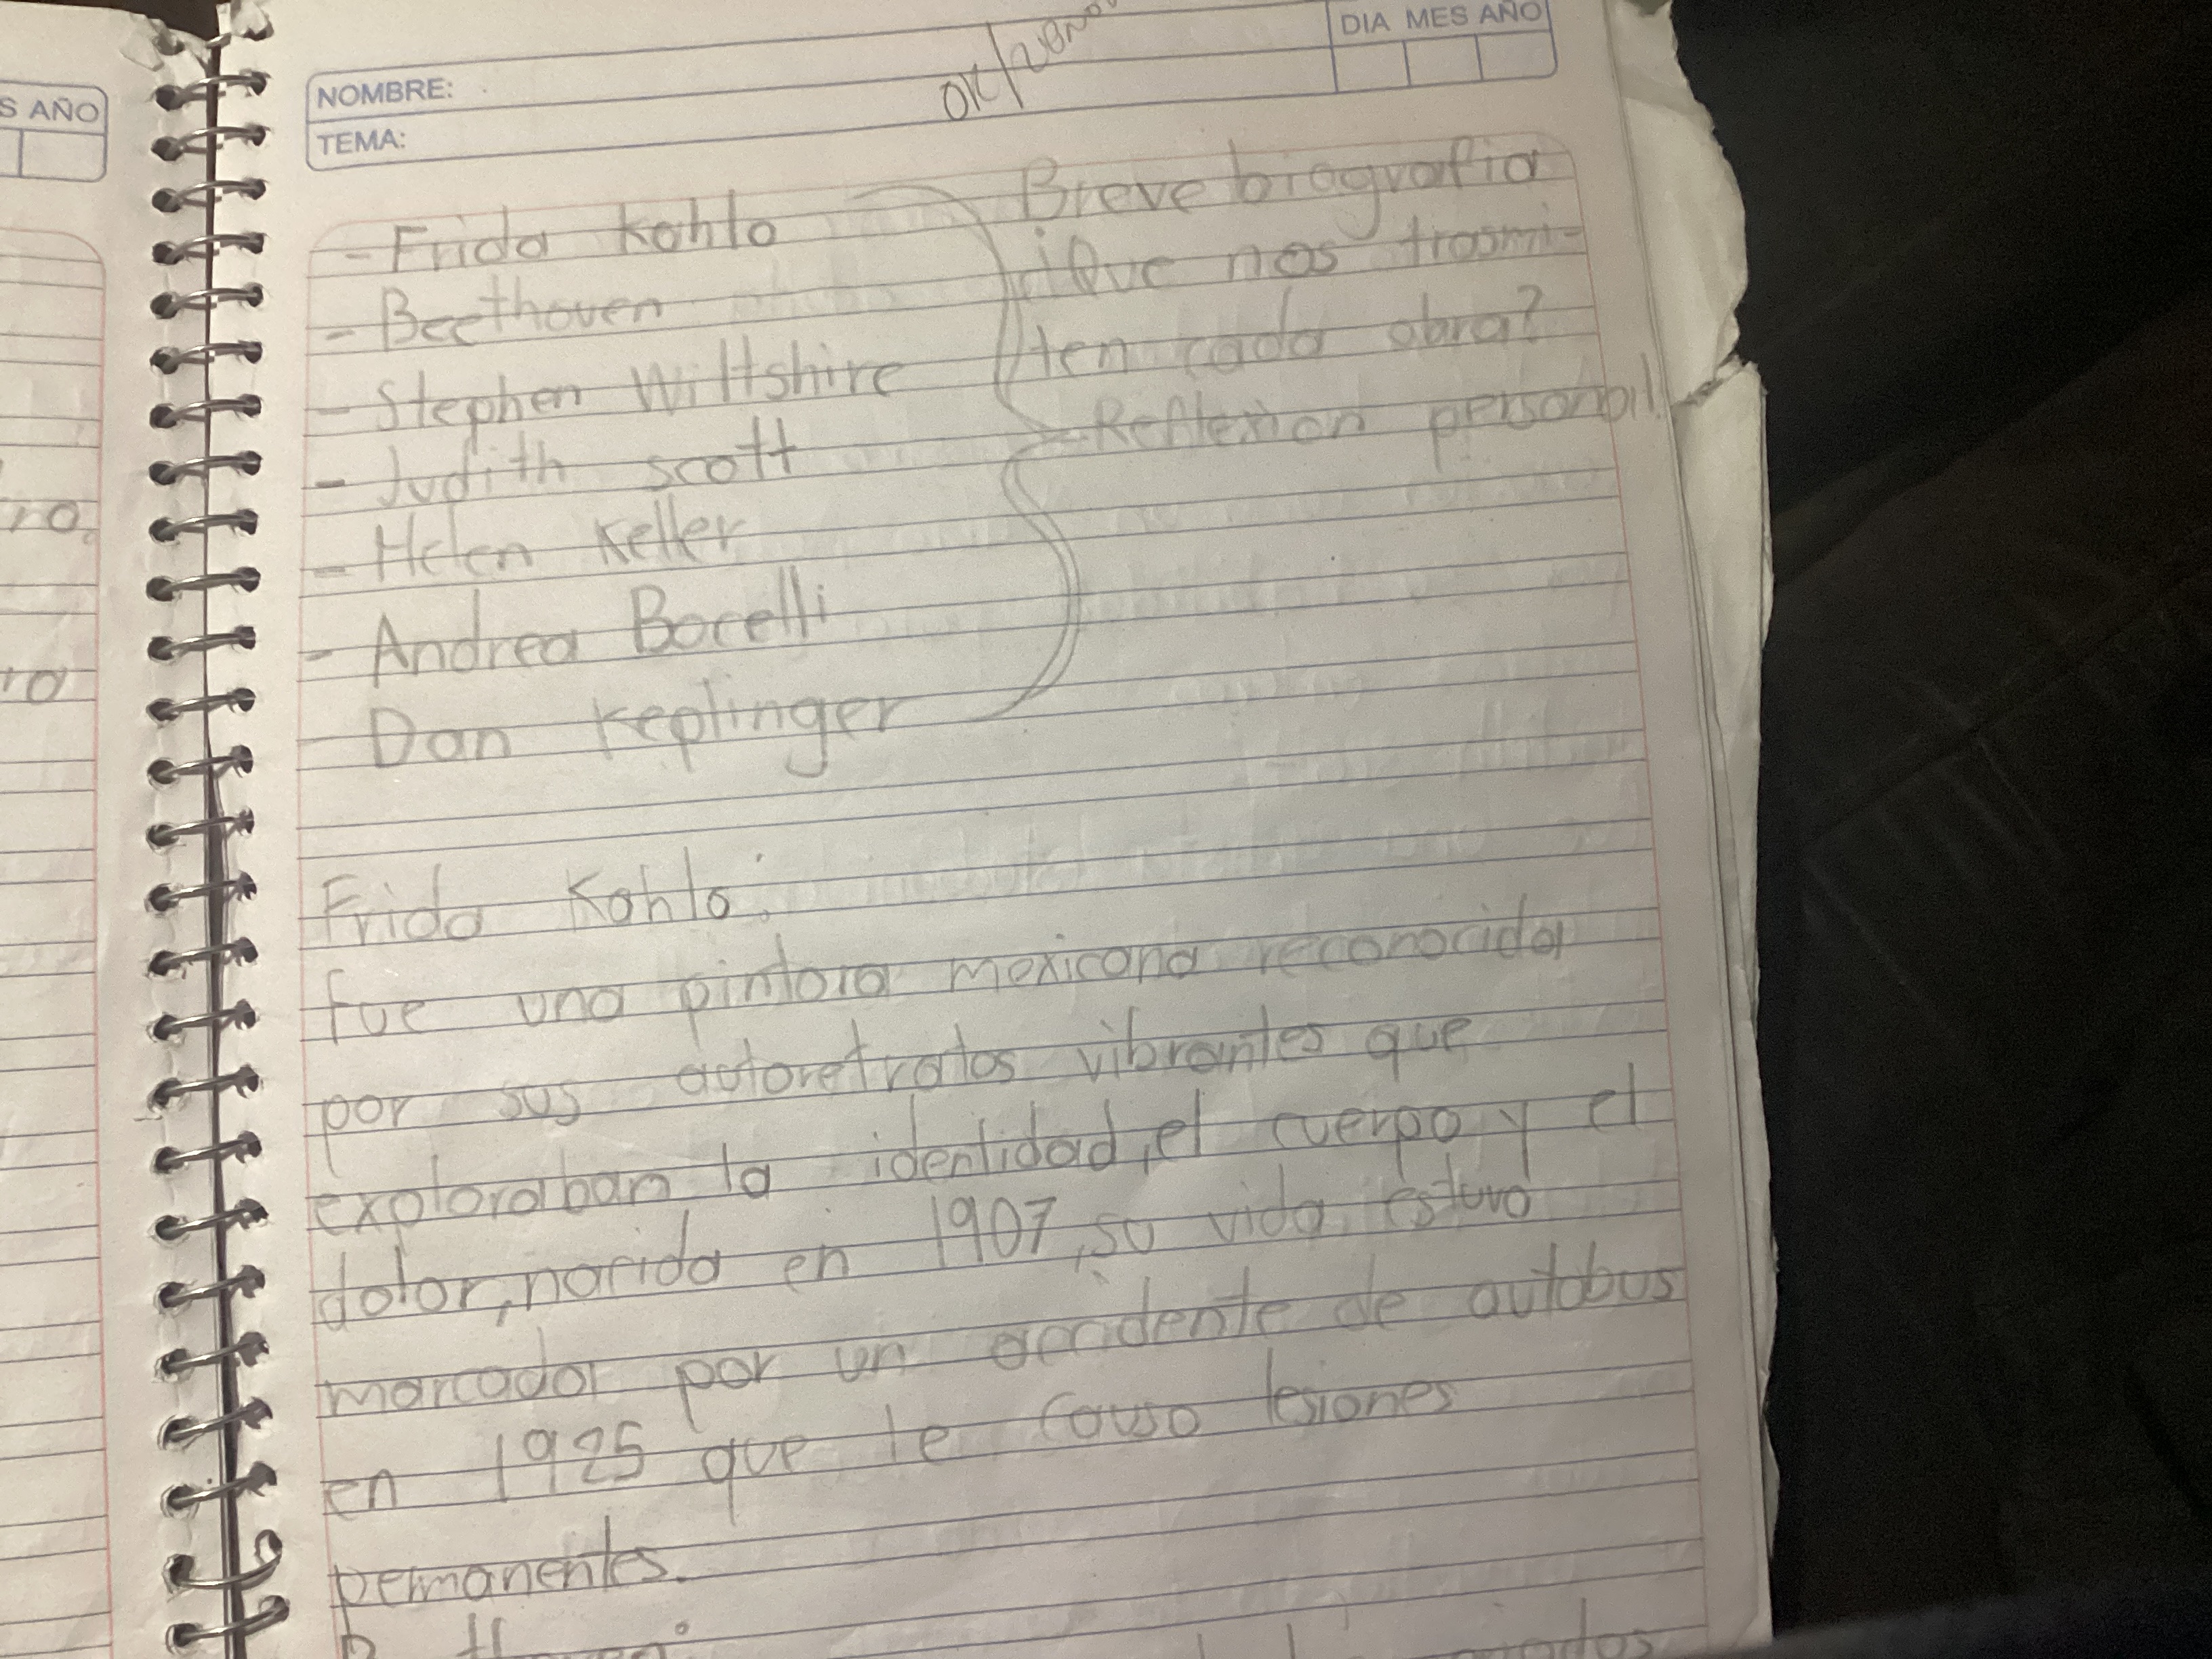 S AÑO
ro.
ra
DIA MES AÑO
NOMBRE:
OK/
TEMA:
- Frida Kahlo
- Beethoven
- Stephen Wiltshire
- Judith scott
- Helen Keller
- Andrea Bocelli
- Dan Keplinger
Breve biografia
¿Que nos trasmi-
ten cada obra?
- Reflexion personal
Frida Kahlo:
fue una pintora mexicana reconocida
por sus autoretratos vibrantes que
exploraban la identidad, el cuerpo y el
dolor, nacida en 1907, su vida estuvo
marcador por un accidente de autobus
en 1925 que le causo lesiones
permanentes.